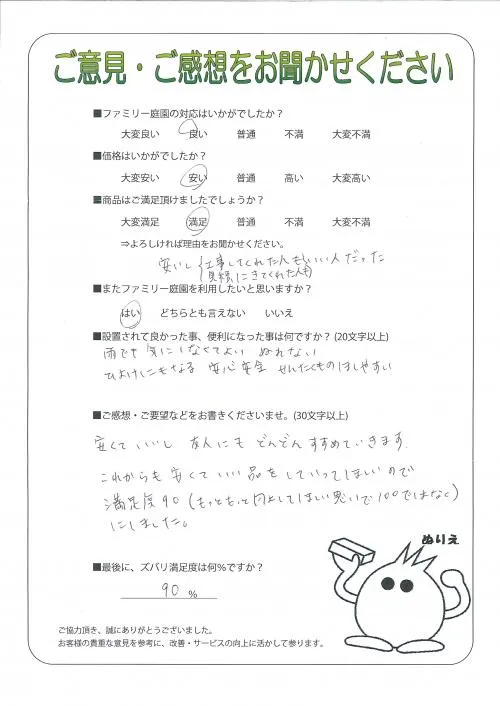 ご意見・ご感想をお聞かせください
■ファミリー庭園の対応はいかがでしたか？
大変良い 良い 普通 不満 大変不満
■価格はいかがでしたか？
大変安い 安い 普通 高い 大変高い
■商品はご満足頂けましたでしょうか？
大変満足 満足 普通 不満 大変不満
⇒よろしければ理由をお聞かせください。
安いし 工事してくれた人もいい人だった
見積にきてくれた人も
■またファミリー庭園を利用したいと思いますか？
はい どちらとも言えない いいえ
■設置されて良かった事、便利になった事は何ですか？(20文字以上)
雨でも気にしなくてよい ぬれない
ひよけにもなる 安心安全 せんたくものほしやすい
■ご感想・ご要望などをお書きくださいませ。(30文字以上)
安くていいし 友人にも どんどん すすめていきます.
これからも安くていい品をしていってほしいので
満足度90(もっともっと向上してほしい思いで100ではなく)
にしました。
■最後に、ズバリ満足度は何%ですか？
90 %
ぬりえ
ご協力頂き、誠にありがとうございました。
お客様の貴重な意見を参考に、改善・サービスの向上に活かして参ります。